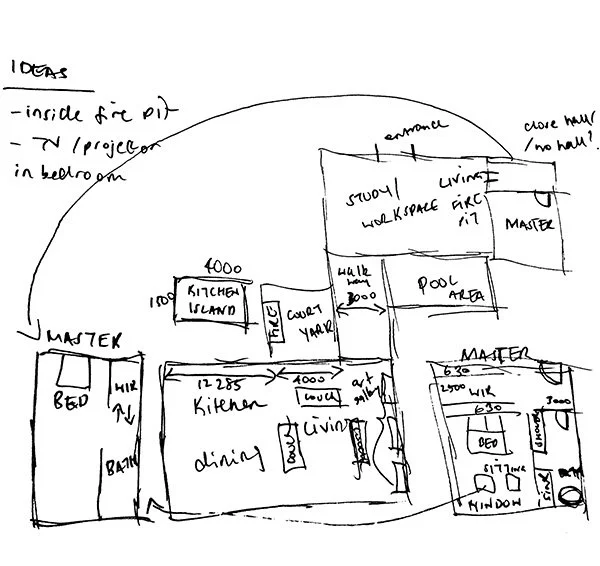 IDEAS
- inside fire pit
- TV / projector
in bedroom
entrance
close hall/
/no hall?
STUDY/
WORKSPACE
LIVING
FIRE
PIT
MASTER
4000
1500
KITCHEN
ISLAND
FIRE
COURT
YARK
walk
way
3000
POOL
AREA
MASTER
BED
WIR
BATH
12285
4000
Kitchen
dining
COUCH
Living
COUCH
art
gallery
MASTER
630
2500
WIR
3000
630
BED
SHOWER
SITTING
SINK
WINDOW